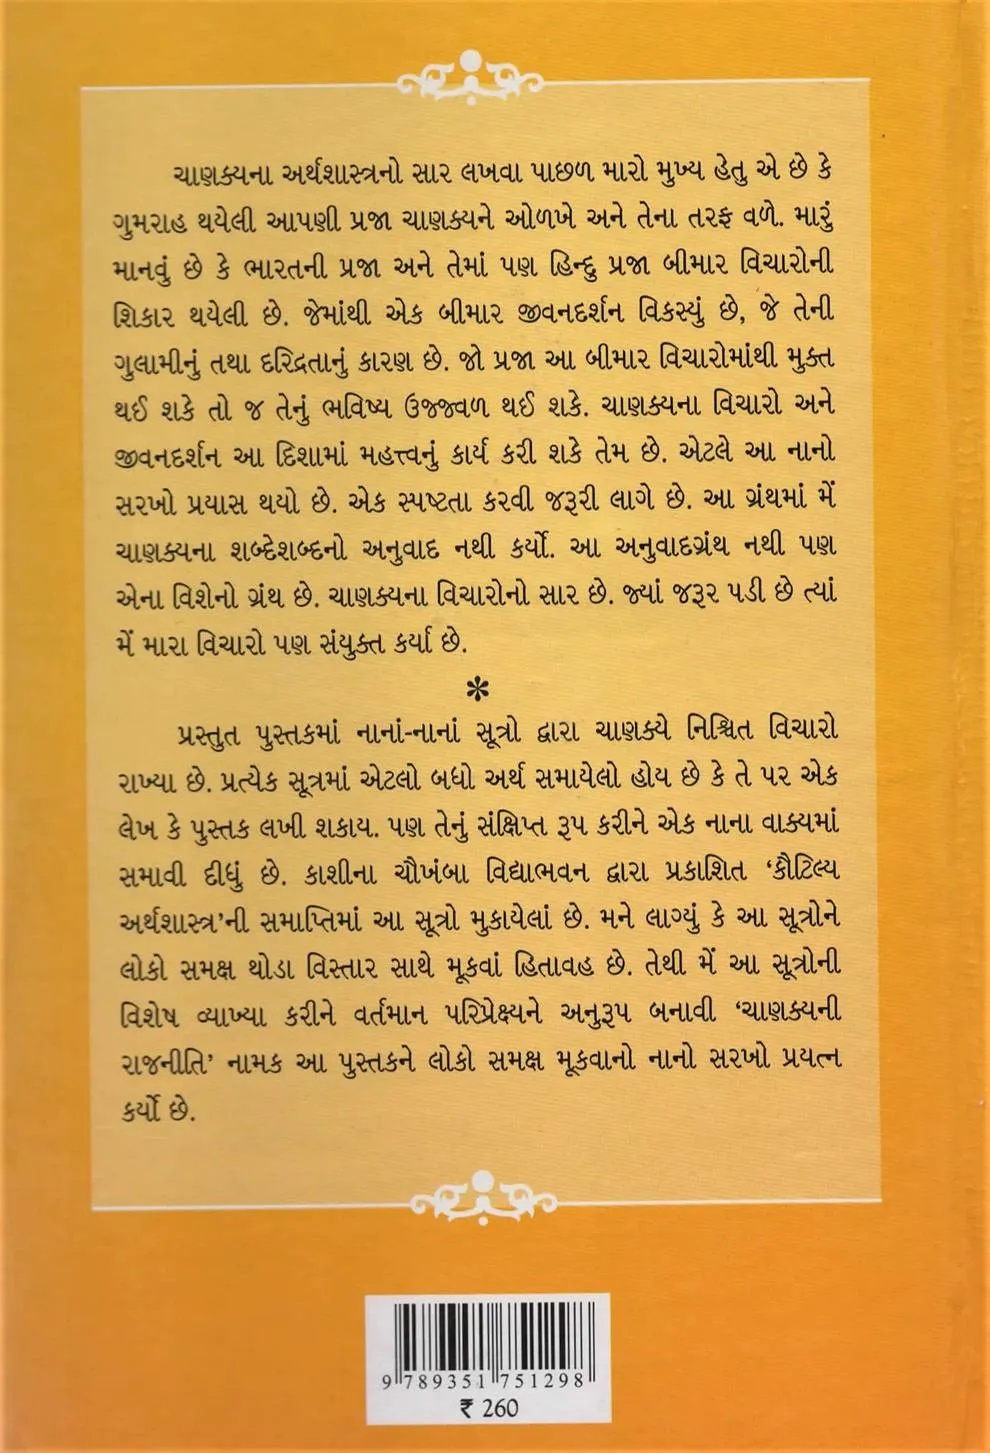 ચાણક્યના અર્થશાસ્ત્રનો સાર લખવા પાછળ મારો મુખ્ય હેતુ એ છે કે
ગુમરાહ થયેલી આપણી પ્રજા ચાણક્યને ઓળખે અને તેના તરફ વળે. મારું
માનવું છે કે ભારતની પ્રજા અને તેમાં પણ હિન્દુ પ્રજા બીમાર વિચારોની
શિકાર થયેલી છે. જેમાંથી એક બીમાર જીવનદર્શન વિકસ્યું છે, જે તેની
ગુલામીનું તથા દરિદ્રતાનું કારણ છે. જો પ્રજા આ બીમાર વિચારોમાંથી મુક્ત
થઈ શકે તો જ તેનું ભવિષ્ય ઉજ્જ્વળ થઈ શકે. ચાણક્યના વિચારો અને
જીવનદર્શન આ દિશામાં મહત્ત્વનું કાર્ય કરી શકે તેમ છે. એટલે આ નાનો
સરખો પ્રયાસ થયો છે. એક સ્પષ્ટતા કરવી જરૂરી લાગે છે. આ ગ્રંથમાં મેં
ચાણક્યના શબ્દેશબ્દનો અનુવાદ નથી કર્યો. આ અનુવાદગ્રંથ નથી પણ
એના વિશેનો ગ્રંથ છે. ચાણક્યના વિચારોનો સાર છે. જ્યાં જરૂર પડી છે ત્યાં
મેં મારા વિચારો પણ સંયુક્ત કર્યા છે.
*
પ્રસ્તુત પુસ્તકમાં નાનાં-નાનાં સૂત્રો દ્વારા ચાણક્યે નિશ્ચિત વિચારો
રાખ્યા છે. પ્રત્યેક સૂત્રમાં એટલો બધો અર્થ સમાયેલો હોય છે કે તે પર એક
લેખ કે પુસ્તક લખી શકાય. પણ તેનું સંક્ષિપ્ત રૂપ કરીને એક નાના વાક્યમાં
સમાવી દીધું છે. કાશીના ચૌખંબા વિદ્યાભવન દ્વારા પ્રકાશિત ‘કૌટિલ્ય
અર્થશાસ્ત્ર’ની સમાપ્તિમાં આ સૂત્રો મુકાયેલાં છે. મને લાગ્યું કે આ સૂત્રોને
લોકો સમક્ષ થોડા વિસ્તાર સાથે મૂકવાં હિતાવહ છે. તેથી મેં આ સૂત્રોની
વિશેષ વ્યાખ્યા કરીને વર્તમાન પરિપ્રેક્ષ્યને અનુરૂપ બનાવી ‘ચાણક્યની
રાજનીતિ’ નામક આ પુસ્તકને લોકો સમક્ષ મૂકવાનો નાનો સરખો પ્રયત્ન
કર્યો છે.
9 789351 751298
₹ 260